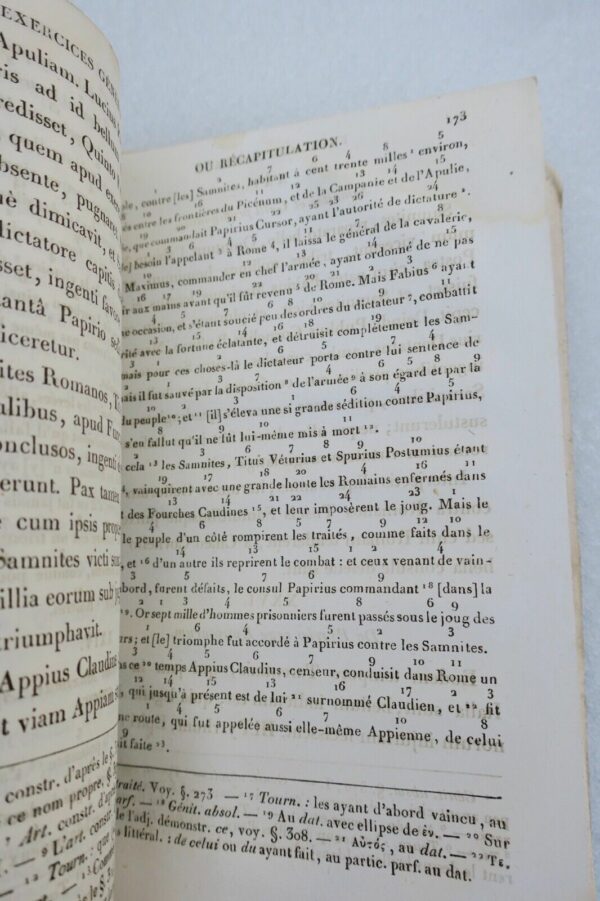 EXERCICES
Apuliam. Lucius
ris ad id bellum
redisset, Quinto
quem apud exer
absente, pugnaret
dimicavit, et
dictatore capitis
sset, ingenti favore
tantâ Papirio
iceretur.
ites Romanos, T.
alibus, apud Fur
onclusos, ingenti
erunt. Pax tamen
cum ipsis prop
Samnites victi
illia eorum sub
triumphavit.
Appius Claudius
t viam Appiam
constr. d'après le §.
ce nom propre, §.
Art. constr. d'ap
L'art. constr
Tourn.: que
173
OU RÉCAPITULATION.
ale, contre [les] Samnites, habitant à cent trente milles ¹ environ,
és entre les frontières du Picénum, et de la Campanie et de l'Apulie,
ie, que commandait Papirius Cursor, ayant l'autorité de dictature ².
e] besoin l'appelant ³ à Rome ⁴, il laissa le général de la cavalerie,
Maximus, commander en chef l'armée, ayant ordonné de ne pas
ir aux mains avant qu'il fût revenu ⁵ de Rome. Mais Fabius ⁶ ayant
ne occasion, et s'étant soucié peu des ordres du dictateur ⁷, combattit
rité avec la fortune éclatante, et détruisit complétement les Sam-
mais pour ces choses-là le dictateur porta contre lui sentence de
ais il fut sauvé par la disposition ⁸ de l'armée ⁹ à son égard et par la
du peuple ¹⁰; et ¹¹ [il] s'éleva une si grande sédition contre Papirius,
s'en fallut qu'il ne fût lui-même mis à mort ¹².
cela ¹³ les Samnites, Titus Véturius et Spurius Postumius étant
, vainquirent avec une grande honte les Romains enfermés dans
t des Fourches Caudines ¹⁵, et leur imposèrent le joug. Mais le
le peuple d'un côté rompirent les traités, comme faits dans le
, et ¹⁶ d'un autre ils reprirent le combat : et ceux venant de vain-
abord, furent défaits, le consul Papirius commandant ¹⁸ [dans] la
¹⁹. Or sept mille d'hommes prisonniers furent passés sous le joug des
urs; et [le] triomphe fut accordé à Papirius contre les Samnites.
ns ce ²⁰ temps Appius Claudius, censeur, conduisit dans Rome un
, qui jusqu'à présent est de lui ²¹ surnommé Claudien, et ²² fit
ne route, qui fut appelée aussi elle-même Appienne, de celui
it faite ²³.
traité. Voy. §. 273 — ¹⁷ Tourn. : les ayant d'abord vaincu, au
arf. — ¹⁸ Génit. absol. — ¹⁹ Au dat. avec ellipse de ἐν. — ²⁰ Sur
e l'adj. démonstr. ce, voy. §. 308. — ²¹ Αὐτός, au dat. — ²² Τε.
littéral. : de celui ou du ayant fait, au partic. parf. au dat.